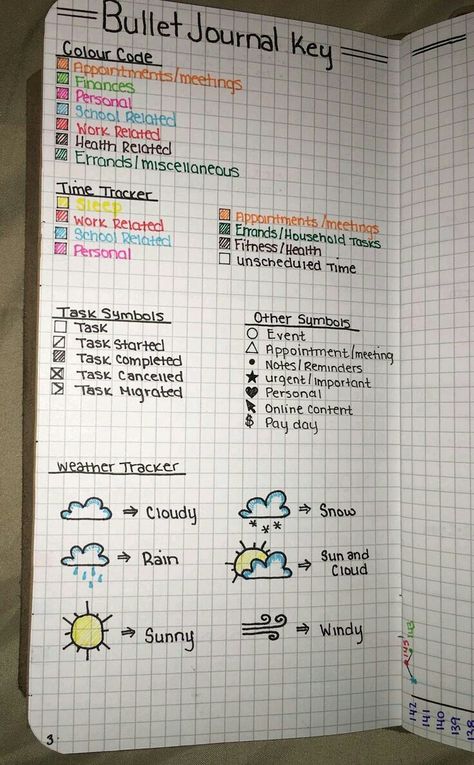 Bullet Journal Key
Colour Code
Appointments/meetings
Finances
Personal
School Related
Work Related
Health Related
Errands/miscellaneous
Time Tracker
Sleep
Work Related
School Related
Personal
Appointments/meetings
Errands/Household Tasks
Fitness/Health
Unscheduled Time
Task Symbols
Task
Task Started
Task Completed
Task Cancelled
Task Migrated
Other Symbols
Event
Appointment/meeting
Notes/Reminders
urgent/important
Personal
Online Content
$ Pay day
Weather Tracker
Cloudy
Snow
Rain
Sun and
Cloud
Sunny
Windy
3
145
143
142
141
140
139
138